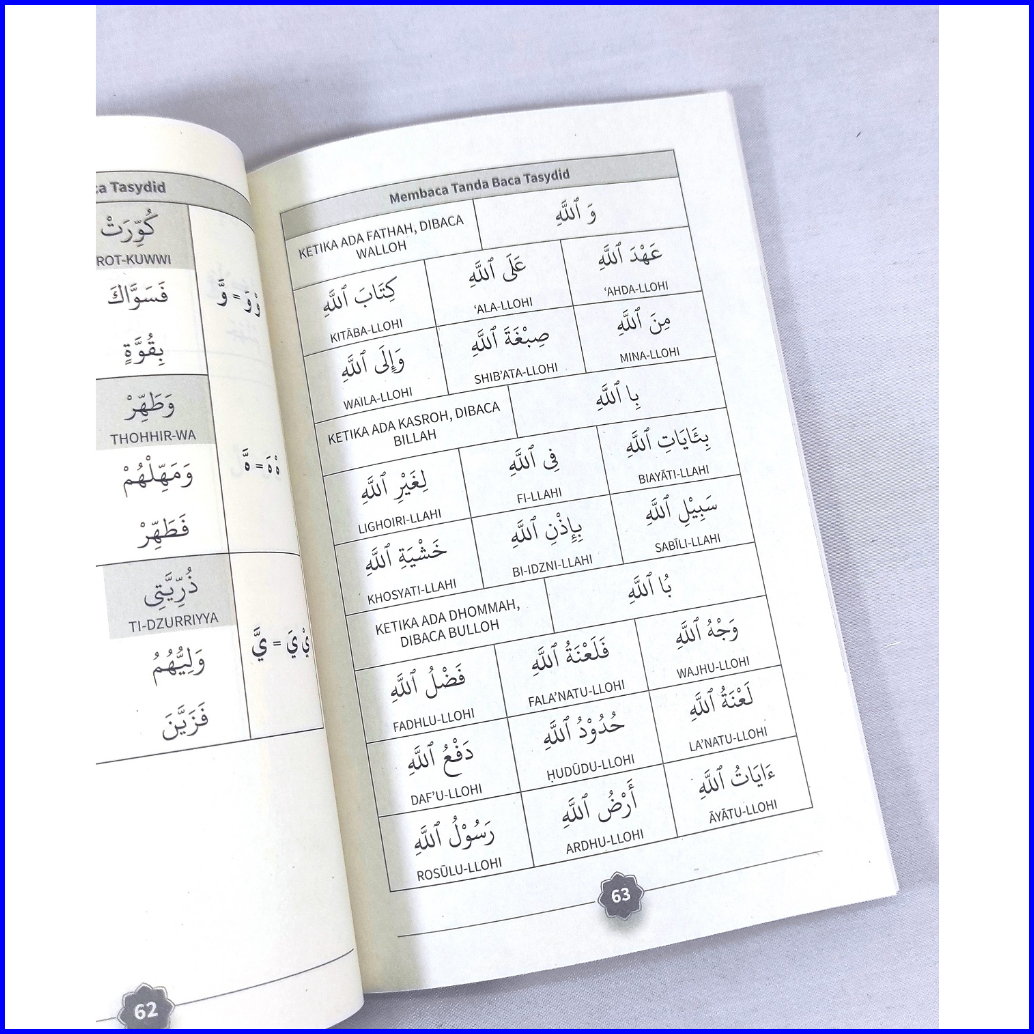 ca Tasydid
كُوِّرَتْ
ROT-KUWWI
فَسَوَّاكَ
بِقُوَّةٍ
وْ وَ = وَّ
وَطَهِّرْ
THOHHIR-WA
وَمَهِّلْهُمْ
فَطَهِّرْ
هْ هَ = هَّ
ذُرِّيَّتِى
TI-DZURRIYYA
وَلِيُّهُمُ
فَزَيَّنَ
يْ يَ = يَّ
62
Membaca Tanda Baca Tasydid
KETIKA ADA FATHAH, DIBACA
WALLOH
وَ ٱللَّهِ
كِتَابَ ٱللَّهِ عَلَى ٱللَّهِ عَهْدَ ٱللَّهِ
KITĀBA-LLOHI 'ALA-LLOHI 'AHDA-LLOHI
وَإِلَى ٱللَّهِ صِبْغَةَ ٱللَّهِ مِنَ ٱللَّهِ
WAILA-LLOHI SHIB'ATA-LLOHI MINA-LLOHI
KETIKA ADA KASROH, DIBACA
BILLAH
بِا ٱللَّهِ
لِغَيْرِ ٱللَّهِ فِى ٱللَّهِ بِئَايَاتِ ٱللَّهِ
LIGHOIRI-LLAHI FI-LLAHI BIAYĀTI-LLAHI
خَشْيَةِ ٱللَّهِ بِإِذْنِ ٱللَّهِ سَبِيْلِ ٱللَّهِ
KHOSYATI-LLAHI BI-IDZNI-LLAHI SABĪLI-LLAHI
KETIKA ADA DHOMMAH,
DIBACA BULLOH
بُا ٱللَّهِ
فَضْلُ ٱللَّهِ فَلَعْنَةُ ٱللَّهِ وَجْهُ ٱللَّهِ
FADHLU-LLOHI FALA'NATU-LLOHI WAJHU-LLOHI
دَفْعُ ٱللَّهِ حُدُوْدُ ٱللَّهِ لَعْنَةُ ٱللَّهِ
DAF'U-LLOHI ḤUDŪDU-LLOHI LA'NATU-LLOHI
رَسُوْلُ ٱللَّهِ أَرْضُ ٱللَّهِ ءَايَاتُ ٱللَّهِ
ROSŪLU-LLOHI ARDHU-LLOHI ĀYĀTU-LLOHI
63